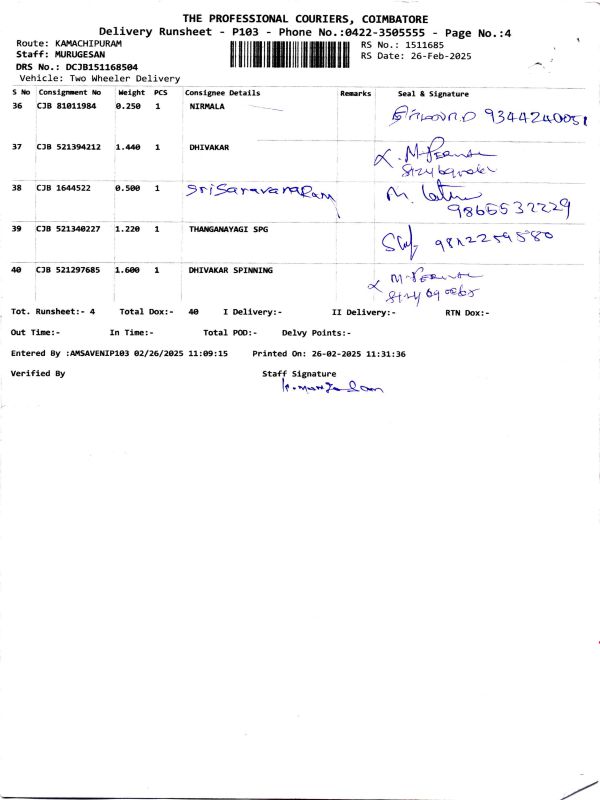 THE PROFESSIONAL COURIERS, COIMBATORE
Delivery Runsheet - P103 - Phone No.:0422-3505555 - Page No.:4
Route: KAMACHIPURAM RS No.: 1511685
Staff: MURUGESAN RS Date: 26-Feb-2025
DRS No.: DCJB151168504
Vehicle: Two Wheeler Delivery
S No Consignment No Weight PCS Consignee Details Remarks Seal & Signature
36 CJB 81011984 0.250 1 NIRMALA 9344240051
37 CJB 521394212 1.440 1 DHIVAKAR
38 CJB 1644522 0.500 1 Sri Saravana Ram M.
9865532229
39 CJB 521340227 1.220 1 THANGANAYAGI SPG 9812259580
40 CJB 521297685 1.600 1 DHIVAKAR SPINNING
Tot. Runsheet:- 4 Total Dox:- 40 I Delivery:- II Delivery:- RTN Dox:-
Out Time:- In Time:- Total POD:- Delvy Points:-
Entered By :AMSAVENIP103 02/26/2025 11:09:15 Printed On: 26-02-2025 11:31:36
Verified By Staff Signature